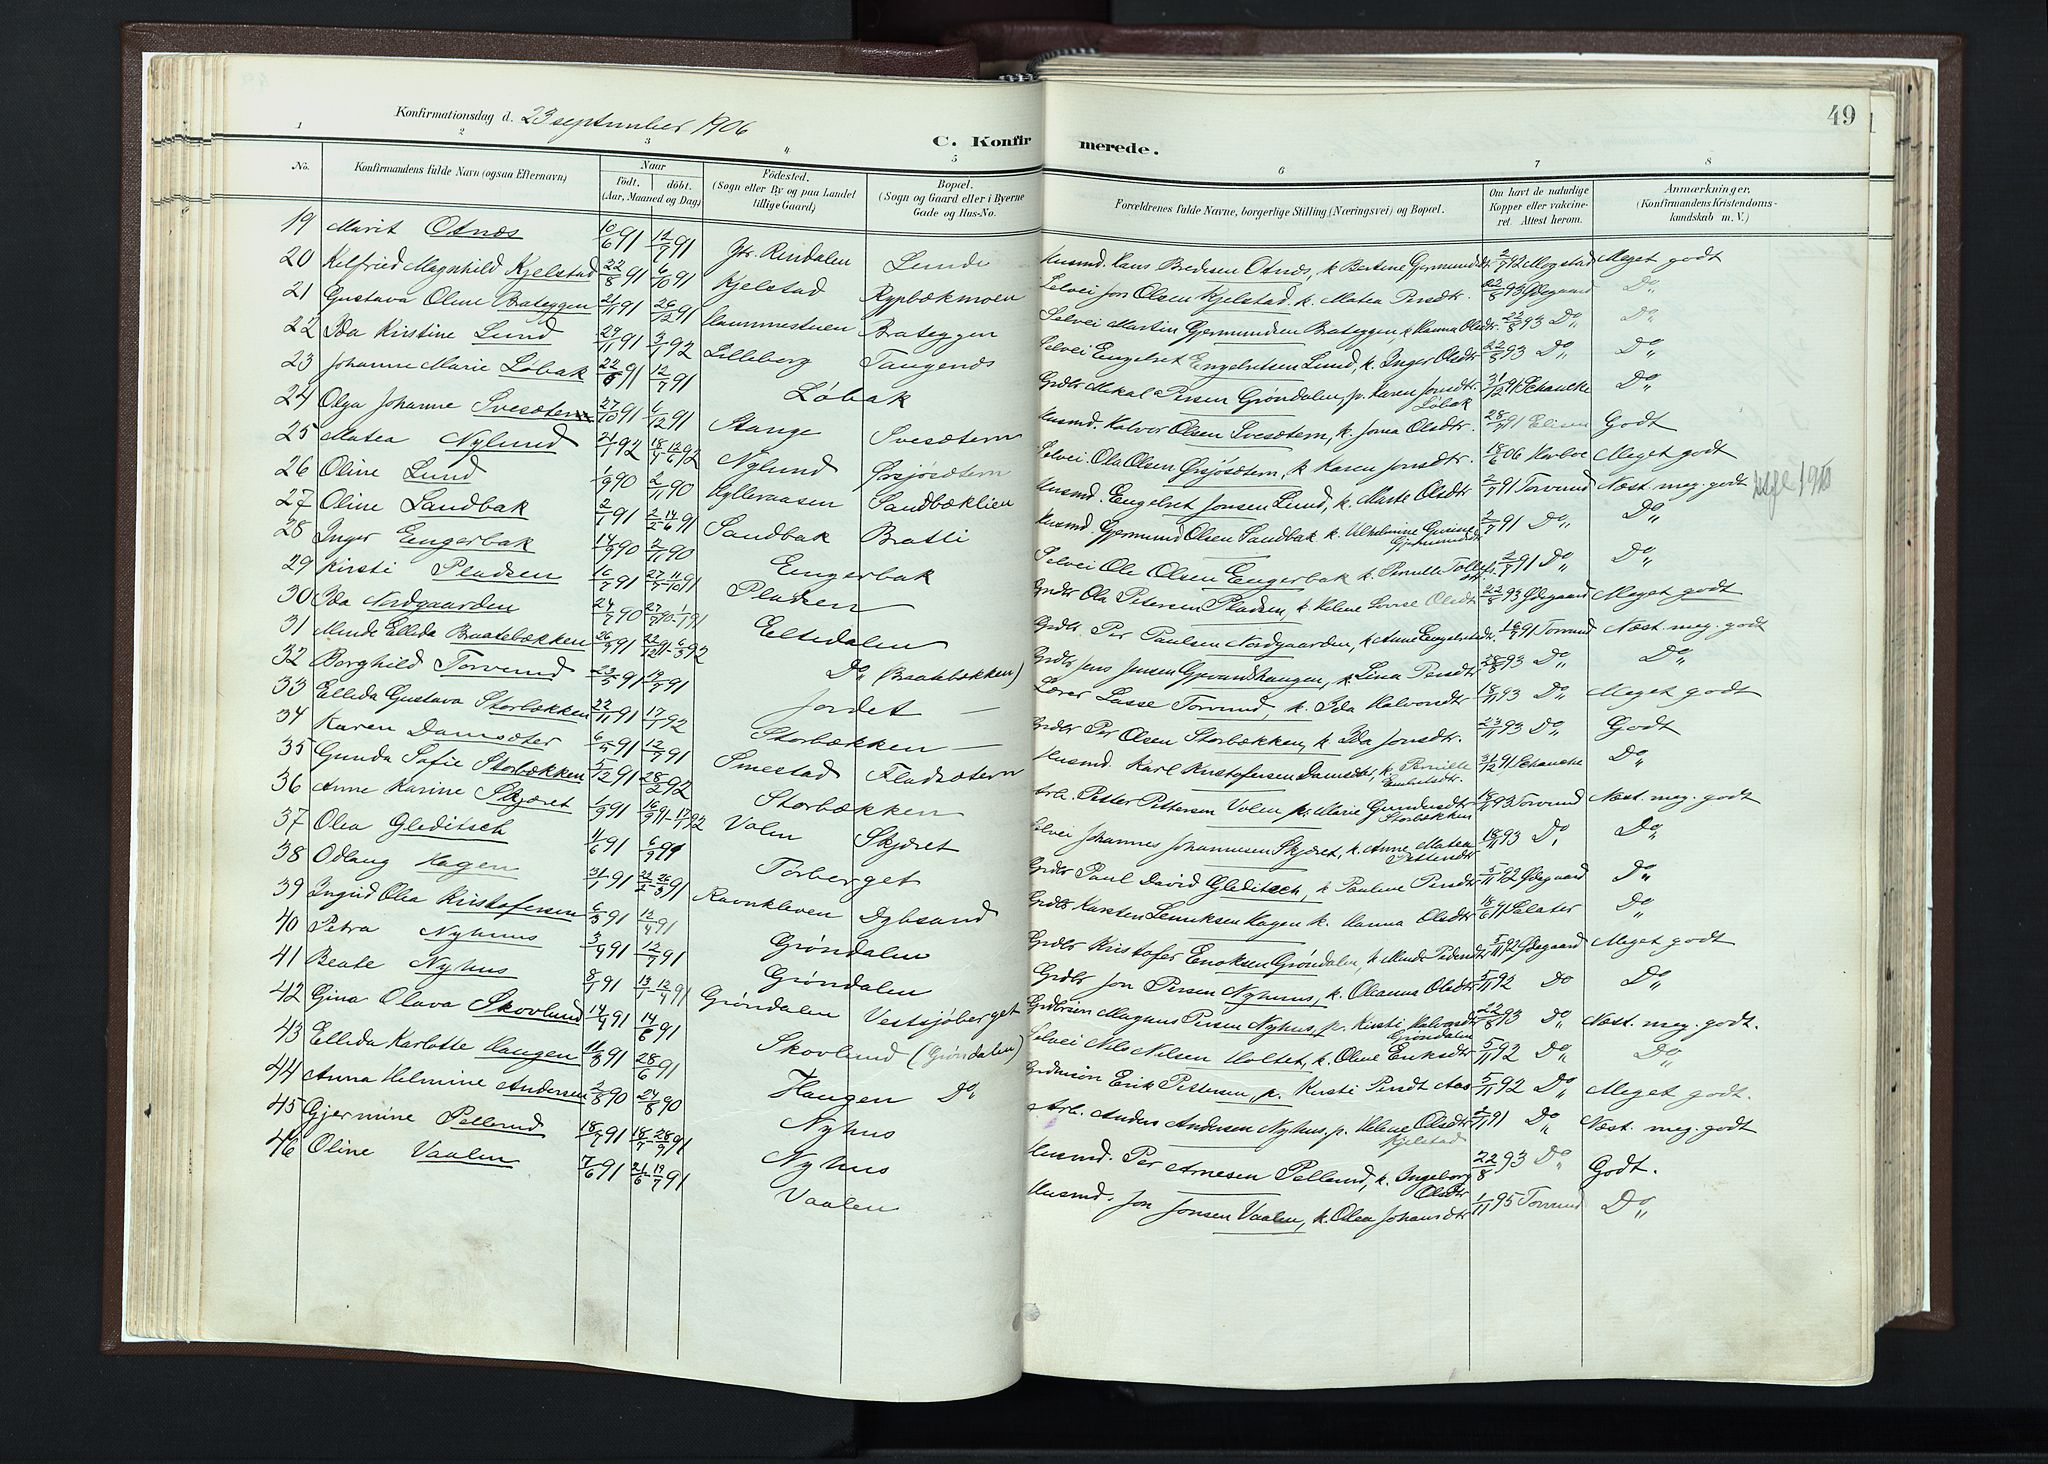 49
Konfirmationsdag d. 23 september 1906
C. Konfirmerede.
1 2 3 4 5 6 7 8
No. Konfirmandens fulde Navn (ogsaa Efternavn) Naar født. døbt. (Aar, Maaned og Dag) Fødested. (Sogn eller By og paa Landet tillige Gaard) Bopæl. (Sogn og Gaard eller i Byerne Gade og Hus-No. Forældrenes fulde Navne, borgerlige Stilling (Næringsvei) og Bopæl. Om havt de naturlige Kopper eller vakcineret. Attest herom. Anmærkninger. (Konfirmandens Kristendomskundskab m. V.)
19 Marit Otnæs 10/6 91 12/7 91 Ytr. Rendalen Lunde Husmd. Hans Bredesen Otnæs, k. Bertine Gjermundsdtr. 2/7 12 Mogstad Meget godt
20 Helfried Magnhild Kjelstad 22/8 91 6/10 91 Kjelstad Rypbækmoen Selvei Jon Olsen Kjelstad k. Matea Persdtr. 22/8 93 Ødegaard Do
21 Gustava Oline Brateggen 21/11 91 26/12 91 Hammestuen Brateggen Selvei Martin Gjermundsen Brateggen, k. Hanna Olsdtr. 22/8 93 Do Do
22 Ida Kirstine Lund 29/11 91 3/1 92 Lilleborg Tangenes Selvei Engelret Engelretsen Lund, k. Inger Olsdtr 22/8 93 Do Do
23 Johanne Marie Løbak 22/6 91 12/7 91 Løbak Grdbr Mikal Persen Grøndalen, p. Karen Jonsdtr. Løbak 31/12 91 Schancke Do
24 Olga Johanne Svesætern 27/10 91 6/12 91 Stange Svesætern Husmd. Halvor Olsen Svesætern, k. Jona Olsdtr. 28/7 91 Godt
25 Matea Nylund 21/1 92 18/4 - 12/6 92 Nylund Ørsjøsætern Selvei. Ola Olsen Ørsjøsætern, k. Karen Jonsdtr. 18/6 06 Meget godt
26 Oline Lund 1/9 90 2/11 90 Hylleraasen Sandbæklien Husmd. Engelret Jonsen Lund, k. Marte Olsdtr 2/7 91 Torvund Næst. meg. godt 1910
27 Oline Sandbak 2/1 91 2/2 - 14/6 91 Sandbak Bratli Husmd. Gjermund Olsen Sandbak k. Vilhelmine Gurine Gjermundsdtr 2/7 91 Do Do
28 Inger Engerbak 14/9 90 2/11 90 Engerbak Selvei Ole Olsen Engerbak k. Pernille 2/7 91 Do Do
29 Kirsti Pladsen 16/7 91 27/7 - 11/10 91 Pladsen Grdbr Ola Petersen Pladsen, k. Helene Lovise Olsdtr 22/8 93 Ødegaard Meget godt
30 Ida Nordgaarden 24/7 90 27/7 90 - 1/1 91 Eltedalen Grdbr. Per Paulsen Nordgaarden, k. Anne Engelretsdtr. 16/7 91 Torvund Næst. meg. godt
31 Minda Ellida Braatebækken 26/9 91 22/12 91 - 6/3 92 Do (Braatebækken) Grdbr Jens Jensen Gjevandshaugen, k. Lina Persdtr 28/8 93 Do Do
32 Borghild Torvund 23/5 91 19/7 91 Jordet — Lærer Lasse Torvund, k. Ida Halvorsdtr 18/11 93 Do Meget godt
33 Ellida Gustava Storbækken 22/11 91 17/1 92 Storbækken — Grdbr Per Olsen Storbækken, k. Ida Jonsdtr. 23/11 93 Do Godt
34 Karen Damsæter 6/5 91 12/7 91 Smestad Fladsætern Husmd. Karl Kristofersen Damsæter, k. Pernille Embretsdtr. 31/12 91 Schancke Do
35 Gunda Sofie Storbækken 5/12 91 28/2 92 Storbækken Arb. Petter Pettersen Volen p. Marie Gundersdtr Storbækken 18/11 93 Torvund Næst. meg. godt
36 Anne Karine Skjæret 1/9 91 16/9 91 - 17/7 92 Volen Skjæret Selvei Johannes Johannesen Skjæret, k. Anne Matea Pettersdtr 18/11 93 Do Do
37 Olea Gleditsch 11/6 91 6/9 91 Torberget Grdbr Paul David Gleditsch, k. Pauline Persdtr 5/11 92 Ødegaard Do
38 Odlaug Hagen 31/1 91 22/2 - 26/3 91 Ravnkleven Dybsand Grdbr Karsten Henriksen Hagen k. Hanna Olsdtr. 18/6 91 Do
39 Ingrid Olea Kristofersen 6/3 91 12/4 91 Grøndalen Grdbr Kristofer Enoksen Grøndalen, k. Minda Pedersdtr 5/11 92 Ødegaard Meget godt
40 Petra Nyhus 3/4 91 12/7 91 Grøndalen Grdbr Jon Persen Nyhus, k. Oleanna Olsdtr 5/11 92 Do Do
41 Beate Nyhus 8/1 91 13/1 - 12/4 91 Grøndalen Vestsjøberget Grdbrsøn Magnus Persen Nyhus, p. Kirsti Halvorsdtr Grøndalen 22/8 93 Do Næst. meg. godt.
42 Gina Olava Skovlund 14/4 91 14/6 91 Skovlund (Grøndalen) Selvei Nils Nilsen Holtet, k. Oline Eriksdtr 5/11 92 Do Do
43 Ellida Karlotte Haugen 11/3 91 28/6 91 Haugen Do Grdmsøn Erik Pettersen, p. Kirsti Persdt Aas 5/11 92 Do Meget godt.
44 Anna Helmine Andersen 2/8 90 24/8 90 Nyhus Arb. Anders Andersen Nyhus, p. Helene Olsdtr Kjelstad 2/11 91 Do Næst. meg. godt
45 Gjermine Pellerud 18/7 91 18/7 - 28/9 91 Nyhus Husmd. Per Arnesen Pellerud, k. Ingeborg Olsdtr 22/8 93 Do Godt.
46 Oline Vaalen 7/6 91 21/6 - 19/7 91 Vaalen Husmd. Jon Jonsen Vaalen, k. Olea Johansdtr 1/11 95 Torvund Do